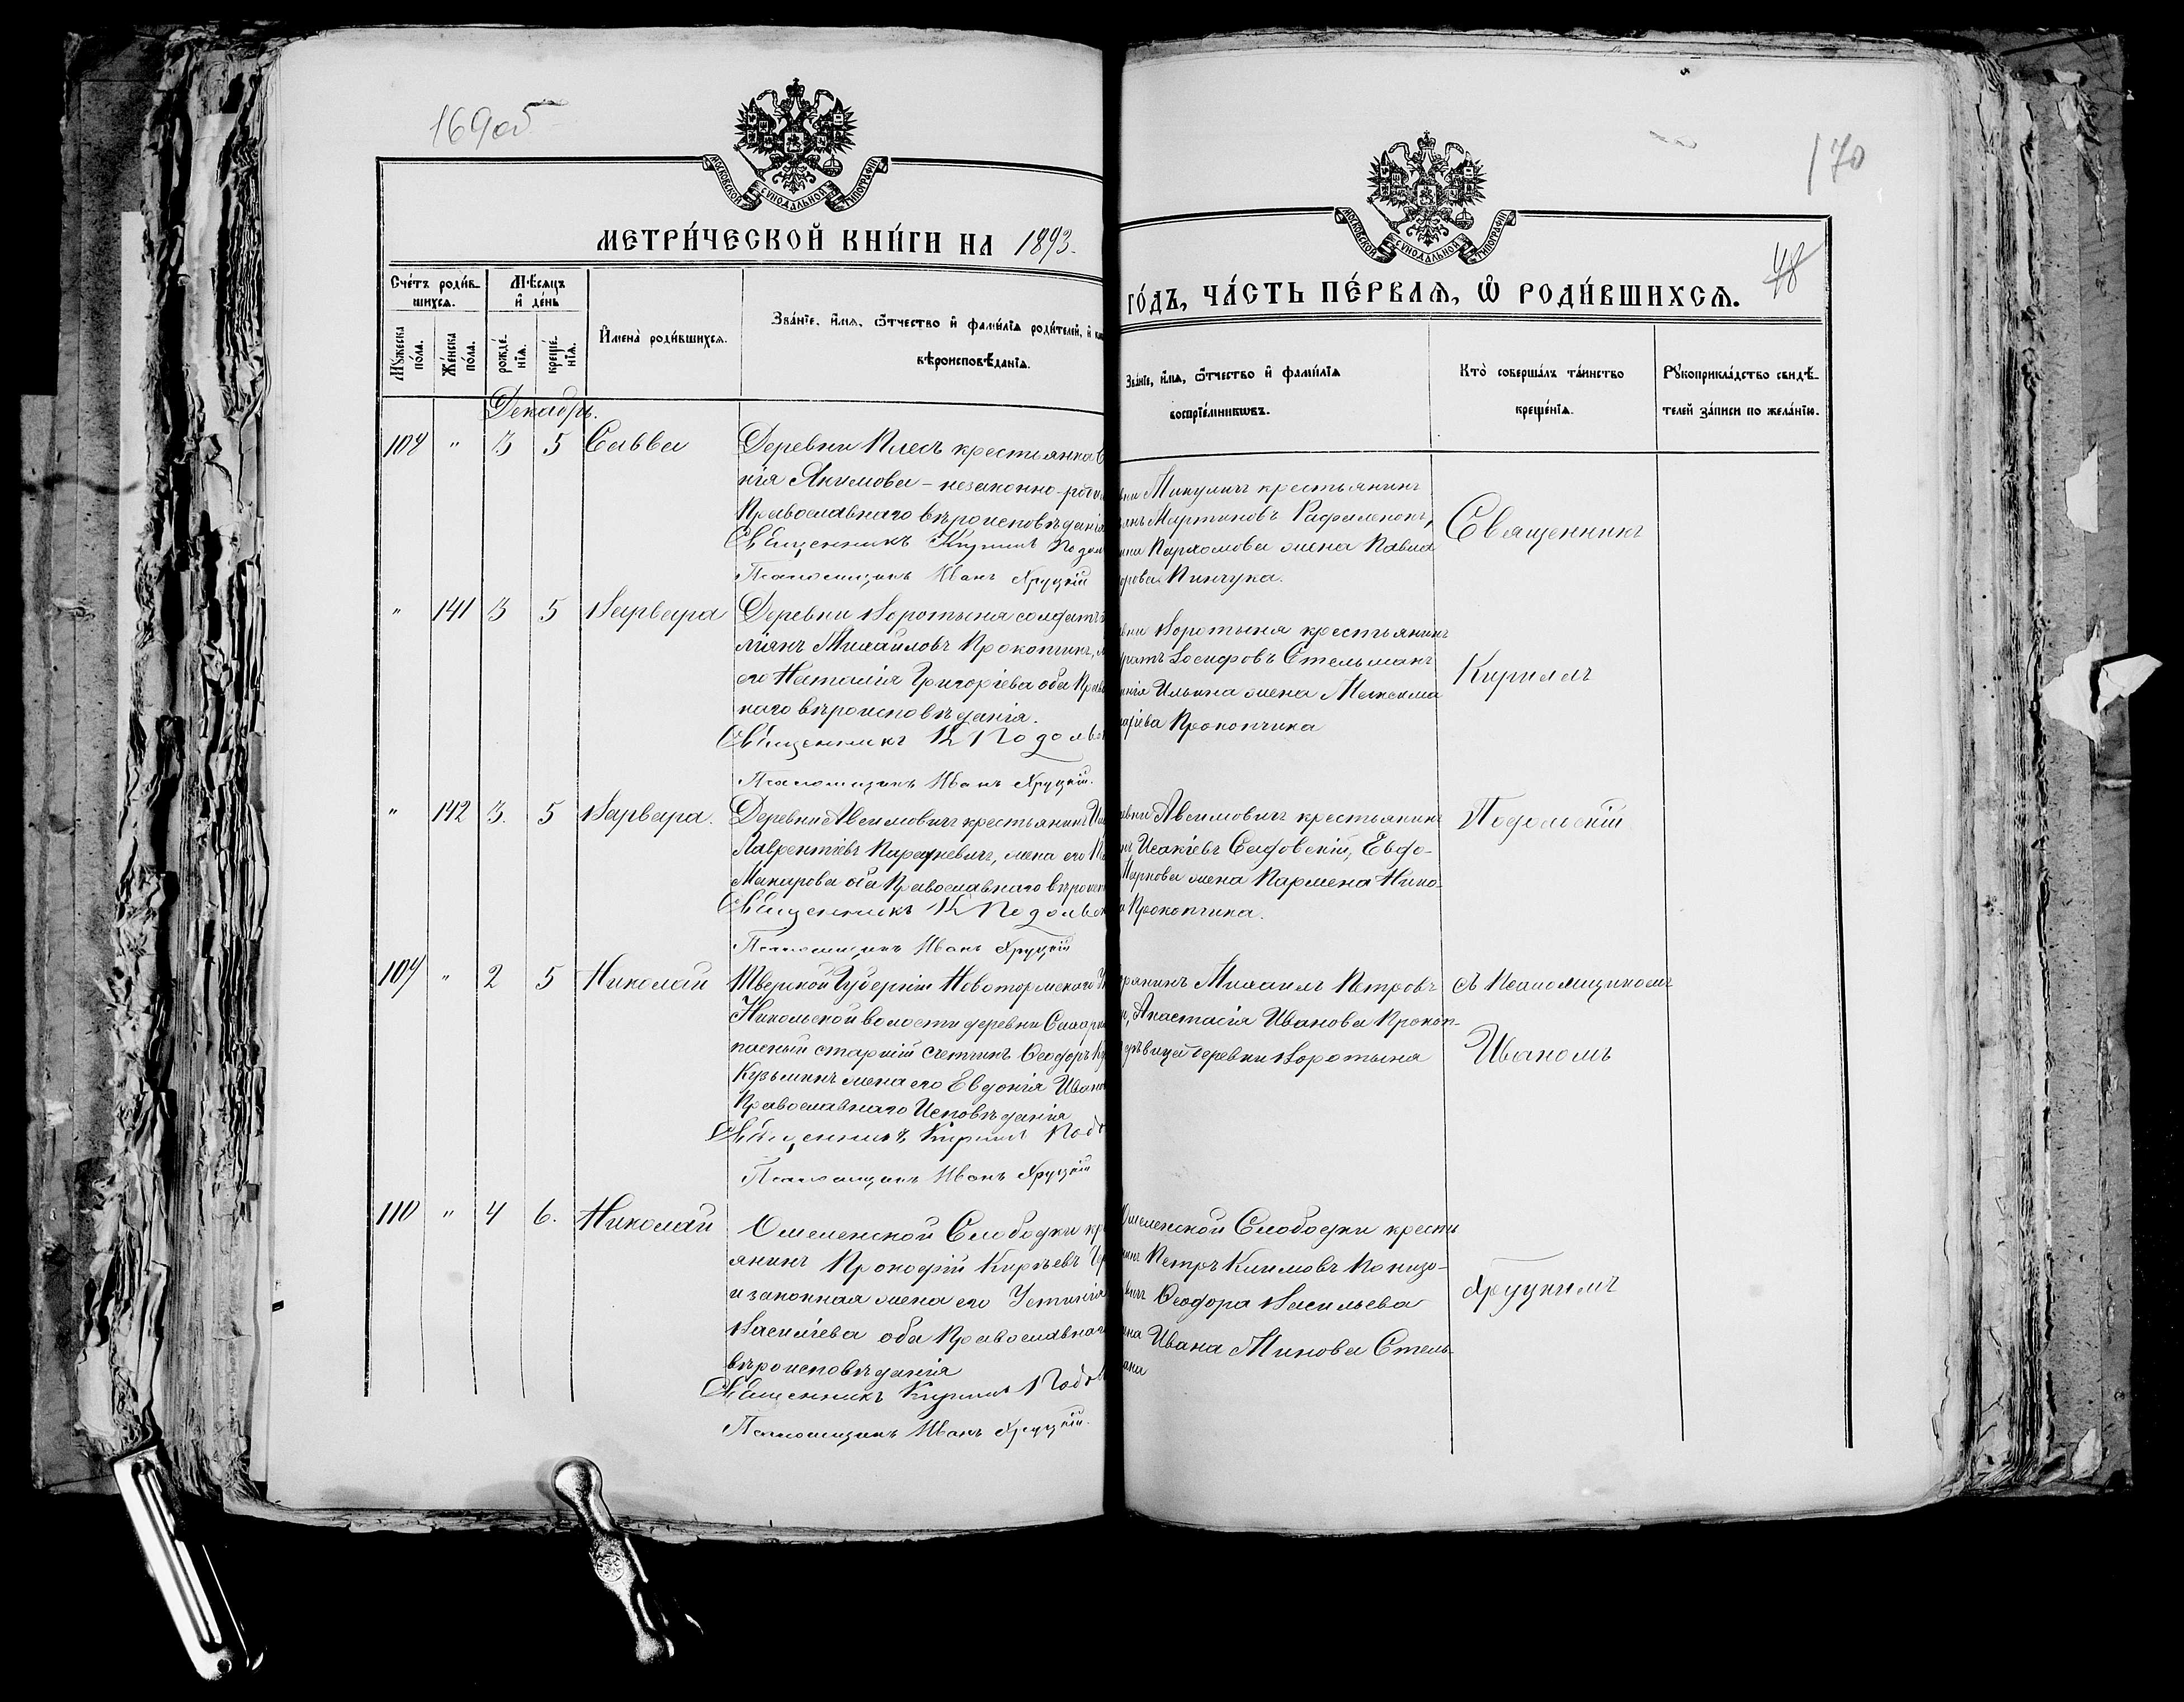 169 об
МОСКОВСКОЙ СѴНОДАЛЬНОЙ ТИПОГРАФІИ
МЕТРИ́ЧЕСКОЙ КНИ́ГИ НА 1893.
Сче́тъ роди́в-
шихсѧ.
Мѣ́сѧцъ
и҆ де́нь
Мꙋ́жеска
по́ла.
Же́нска
по́ла.
рожде́-
нїѧ.
креще́-
нїѧ.
И҆мена̀ роди́вшихсѧ.
Зва́нїе, и҆́мѧ, ѻ҆́тчество и҆ фами́лїѧ роди́телей, и҆
вѣроисповѣ́данїѧ.
Декабрь.
108 " 3 5 Савва
Деревни Плесъ крестьянка
нія Якимова – незаконно-рож
Православнаго вѣроисповѣданія
Священникъ Кириллъ Подол
Псаломщикъ Иванъ Хруцкій
" 141 3 5 Варвара
Деревни Воротыня солдатъ
ліянъ Михайловъ Прокопчикъ,
его Наталія Григоріева оба Прав
наго вѣроисповѣданія.
Священникъ К Подольск
Псаломщикъ Иванъ Хруцкій.
" 142 3. 5 Варвара.
Деревни Авсимовичъ крестьянинъ
Лаврентіевъ Парахневичъ, жена его
Макарова оба Православнаго вѣроисп
Священникъ К Подольск
Псаломщикъ Иванъ Хруцкій
109 " 2 5 Николай
Тверской Губерніи Новоторжскаго
Никольской волости деревни
пасный старшій Ѳеодоръ
Кузьминъ жена его Евдокія Иван
Православнаго Исповѣданія
Священникъ Кириллъ Подо
Псаломщикъ Иванъ Хруцкій
110 " 4 6. Николай
Омеленской Слободки кр
янинъ Прокофій Кирѣевъ
и законная жена его Устинія
Василіева оба Православнаг
вѣроисповѣданія
Священникъ Кириллъ Подол
Псаломщикъ Иванъ Хруцкій.
170
МОСКОВСКОЙ СѴНОДАЛЬНОЙ ТИПОГРАФІИ
48
ГО́ДЪ, ЧА́СТЬ ПЕ́РВАѦ, Ѽ РОДИ́ВШИХСѦ.
Зва́нїе, и҆́мѧ, ѻ҆́тчество и҆ фами́лїѧ
воспрїе́мниковъ.
Кто̀ соверша́лъ та́инство
креще́нїѧ.
Рꙋкоприкла́дство свидѣ́-
телей за́писи по жела́нїю.
вни Микуличъ крестьянинъ
Мартиновъ Рафаленокъ,
Пархомова жена Павла
Пинчука.
вни Воротыня крестьянинъ
Іосифовъ Стельмахъ
Ильина жена Максима
Прокопчика
вни Авсимовичъ крестьянинъ
Исакіевъ Садовскій, Евдо-
Маркова жена Пармена Нико-
Прокопчика.
рянинъ Михаилъ Петровъ
Анастасія Иванова Прокоп-
дѣвица деревни Воротыня
Омеленской Слободки кресть
янинъ Петръ Климовъ Понизо-
вичъ Ѳеодора Васильева
жена Ивана Минова Стель-
Священникъ
Кириллъ
Подольскій
съ Псаломщикомъ
Иваномъ
Хруцкимъ